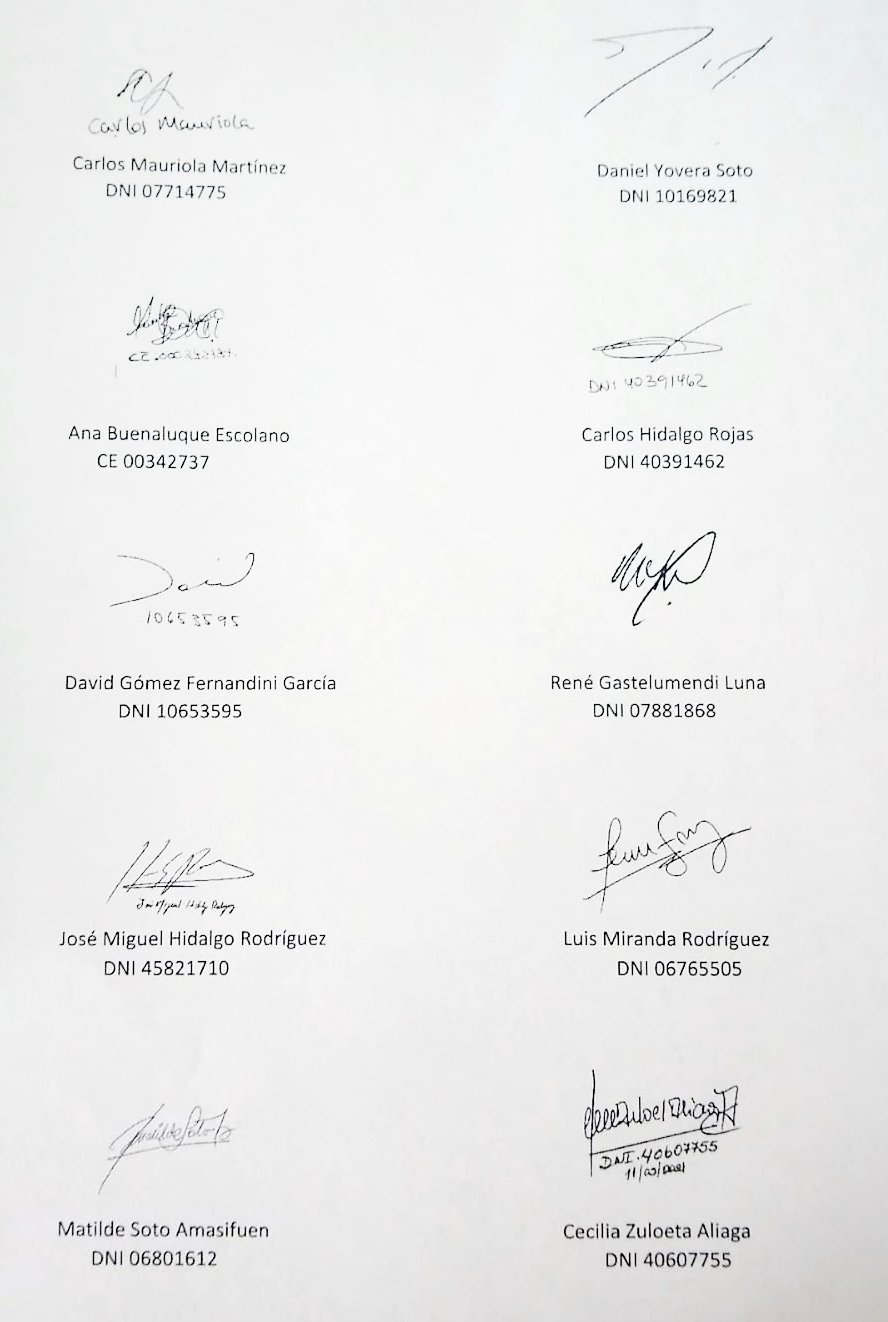 Carlos Mauriola
Carlos Mauriola Martínez
DNI 07714775
Daniel Yovera Soto
DNI 10169821
Ana Buenaluque Escolano
CE 00342737
DNI 40391462
Carlos Hidalgo Rojas
DNI 40391462
David
10653595
David Gómez Fernandini García
DNI 10653595
René Gastelumendi Luna
DNI 07881868
José Miguel Hidalgo Rodríguez
DNI 45821710
Luis Miranda Rodríguez
DNI 06765505
Matilde Soto
Matilde Soto Amasifuen
DNI 06801612
DNI. 40607755
Cecilia Zuloeta Aliaga
DNI 40607755